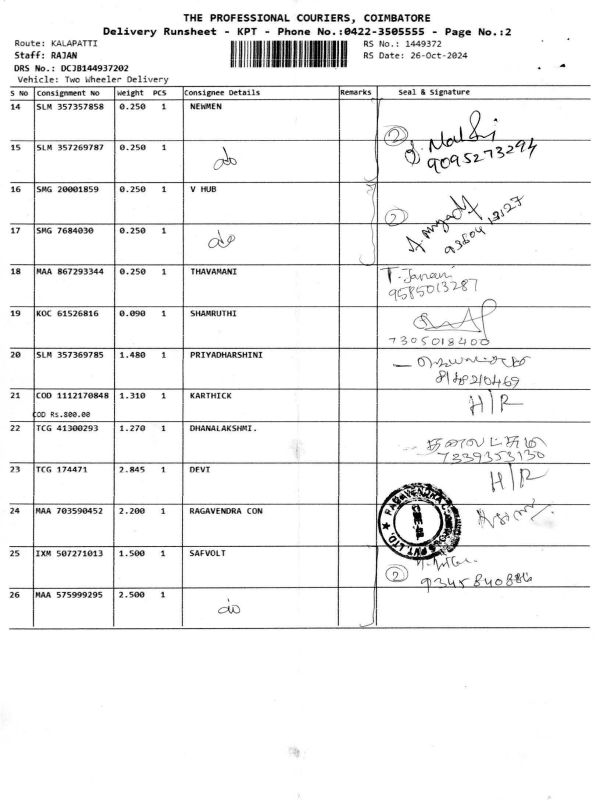 THE PROFESSIONAL COURIERS, COIMBATORE
Delivery Runsheet - KPT - Phone No.:0422-3505555 - Page No.:2
Route: KALAPATTI
RS No.: 1449372
Staff: RAJAN
RS Date: 26-Oct-2024
DRS No.: DCJB144937202
Vehicle: Two Wheeler Delivery
S No Consignment No Weight PCS Consignee Details Remarks Seal & Signature
14 SLM 357357858 0.250 1 NEWMEN
15 SLM 357269787 0.250 1 do
2
9095273294
16 SMG 20001859 0.250 1 V HUB
17 SMG 7684030 0.250 1 do
2
18 MAA 867293344 0.250 1 THAVAMANI T. Janani
9585013287
19 KOC 61526816 0.090 1 SHAMRUTHI
7305018400
20 SLM 357369785 1.480 1 PRIYADHARSHINI
21 COD 1112170848 1.310 1 KARTHICK H/R
COD Rs.800.00
22 TCG 41300293 1.270 1 DHANALAKSHMI.
7339353130
23 TCG 174471 2.845 1 DEVI H/R
24 MAA 703590452 2.200 1 RAGAVENDRA CON
25 IXM 507271013 1.500 1 SAFVOLT
2 9345840886
26 MAA 575999295 2.500 1 do